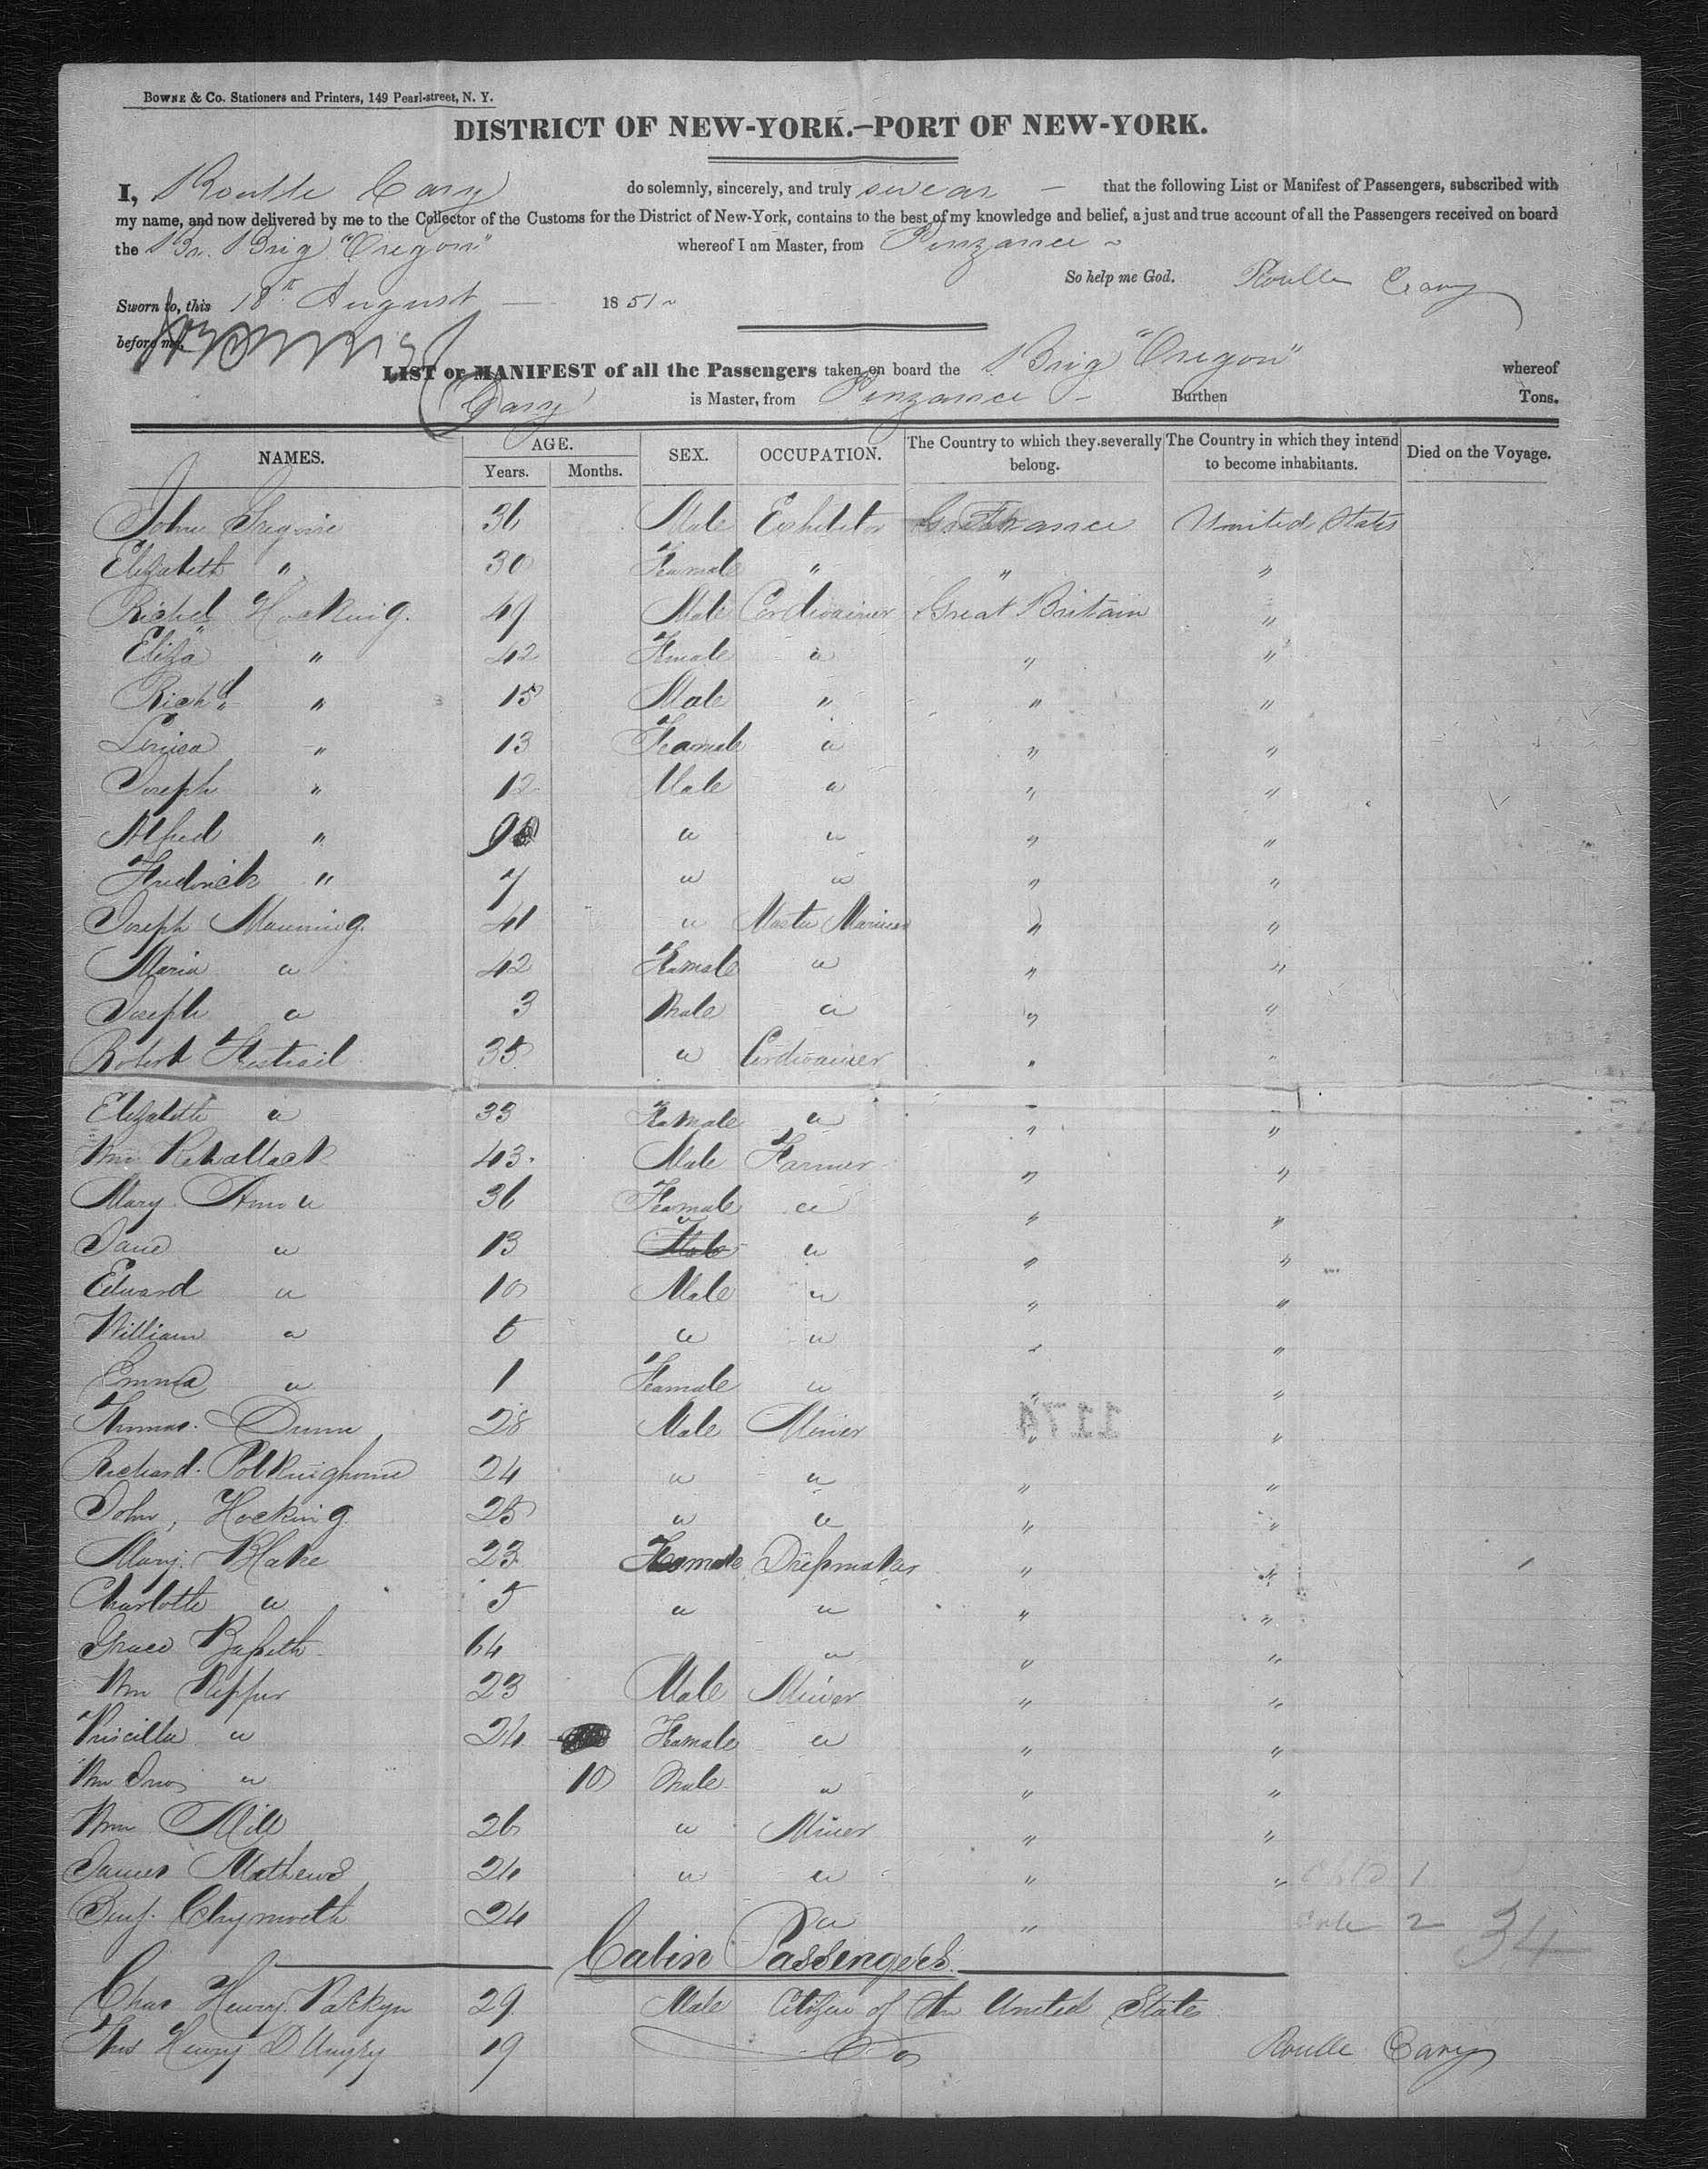 BOWNE & Co. Stationers and Printers, 149 Pearl-street, N. Y.
DISTRICT OF NEW-YORK.—PORT OF NEW-YORK.
I, Roulle Cary do solemnly, sincerely, and truly swear — that the following List or Manifest of Passengers, subscribed with
my name, and now delivered by me to the Collector of the Customs for the District of New-York, contains to the best of my knowledge and belief, a just and true account of all the Passengers received on board
the Br. Brig "Oregon" whereof I am Master, from Penzance -
So help me God. Roulle Cary
Sworn to, this 18th August — 1851 -
before me,
LIST or MANIFEST of all the Passengers taken on board the Brig "Oregon" whereof
Cary is Master, from Penzance - Burthen Tons.
NAMES. AGE. Years. Months. SEX. OCCUPATION. The Country to which they severally belong. The Country in which they intend to become inhabitants. Died on the Voyage.
John 36 Male Exhibitor France United States
Elizabeth " 30 Feamale " " "
Richd Hocking. 49 Male Cordwainer Great Britain "
Eliza " 42 Female " " "
Richd " 15 Male " " "
" 13 Feamale " " "
Joseph " 12 Male " " "
Alfred " 9 " " " "
Fredrick " 7 " " " "
Joseph Manning. 41 " Master Mariner " "
Maria " 42 Feamale " " "
Joseph " 3 Male " " "
Robert 35 " Cordwainer " "
Elizabeth " 33 Feamale " " "
Wm Rehallack 43. Male Farmer " "
Mary Ann " 36 Feamale " " "
Jane " 13 " Male " " "
Edward " 10 Male " " "
William " 5 " " " "
Emma " 1 Feamale " " "
Thomas. Dunn 28 Male Miner " "
Richard. Polkinghorne 24 " " " "
John, Hocking 25 " " " "
Mary. Blake 23 Feamale Dressmaker " "
Charlotte " 5 " " " "
Grace 64 " " "
Wm Pepper 23 Male Miner " "
Priscilla " 24 Feamale " " "
Wm Jno " 10 Male " " "
Wm Mill 26 " Miner " "
James Mathews 24 " " " " 1
Benj. Clymoeth 24 " " 2 34
Cabin Passengers
Chas Henry 29 Male Citizen of the United States
Henry 19 Do
Roulle Cary
1174